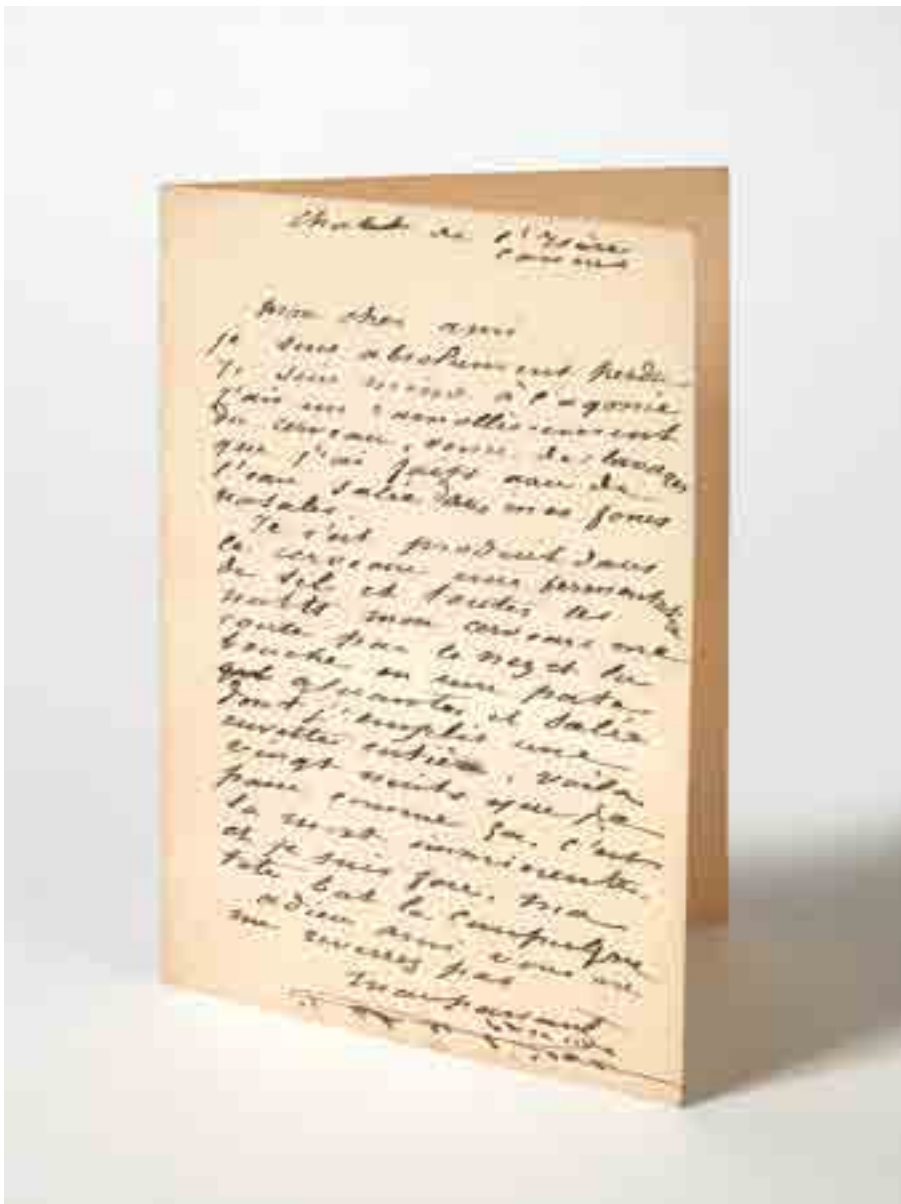 Chalet de l'Isère
Cannes
Mon cher ami
je suis absolument perdu
je suis même à l'agonie
j'ai un ramollissement
du cerveau venu des lavages
que j'ai faits avec de
l'eau salée dans mes fosses
nasales.
Il s'est produit dans
le cerveau une fermentation
de sel et toutes les
nuits mon cerveau me
coule par le nez et la
bouche en une pate
gluante et salée
dont j'emplis une
cuvette entière. voila
vingt nuits que je
passe comme ça. c'est
la mort imminente
et je suis fou. ma
tete bat la campagne
adieu ami vous ne
me reverrez pas
Maupassant